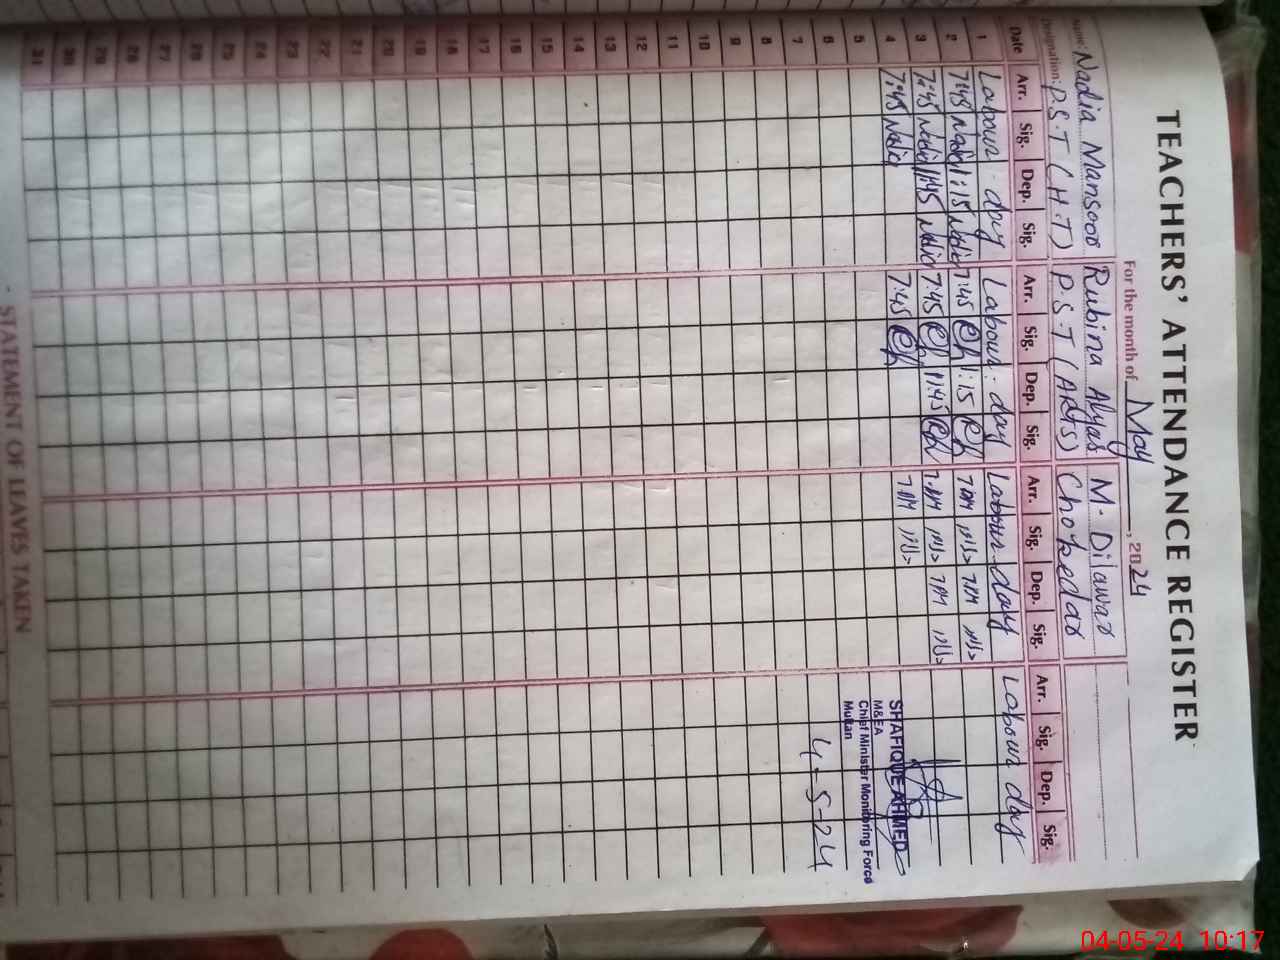 TEACHERS' ATTENDANCE REGISTER
For the month of May, 2024
Name: Nadia Mansoor Rubina Alyas M. Dilawar
Designation: P.S.T (H.T) P.S.T (ARTS) Chokedar
Date Arr. Sig. Dep. Sig. Arr. Sig. Dep. Sig. Arr. Sig. Dep. Sig. Arr. Sig. Dep. Sig.
1 Labour day Labour day Labour day Labour day
2 7:45 Nadia 1:15 Nadia 7:45 1:15 7AM 7PM
3 7:45 Nadia 11:45 Nadia 7:45 11:45 7AM 7PM
4 7:45 Nadia 7:45 7AM
SHAFIQUE AHMED
M&EA
5
Chief Minister Monitoring Force
Multan
6
4-5-24
7
8
9
10
11
12
13
14
15
16
17
18
19
20
21
22
23
24
25
26
27
28
29
30
31
STATEMENT OF LEAVES TAKEN
04-05-24 10:17